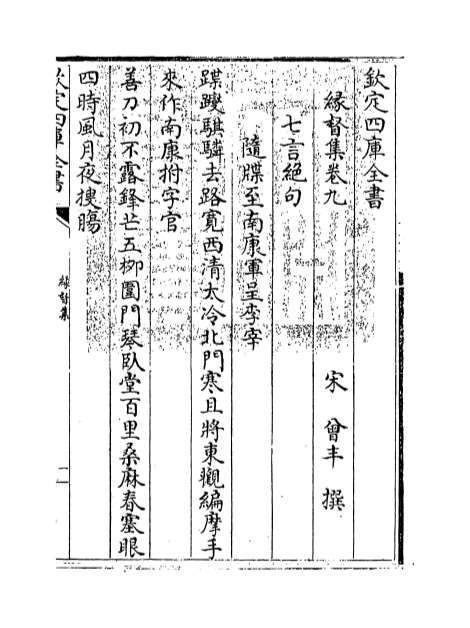 欽定四庫全書
緣督集卷九
宋 曾丰 撰
七言絶句
隨牒至南康軍呈李宰
蹀躞騏驎去路寛西清太冷北門寒且將東觀編摩手
來作南康拊字官
善刀初不露鋒芒五栁圍門琴臥堂百里桑麻春塞眼
四時風月夜搜膓
欽定四庫全書
緣督集